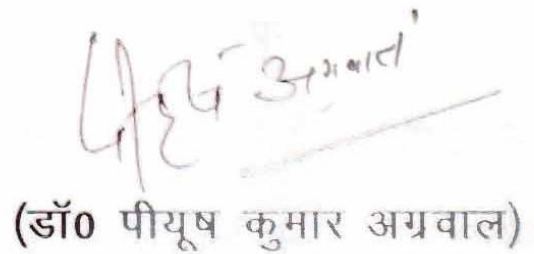 पीयूष अग्रवाल
(डॉ0 पीयूष कुमार अग्रवाल)